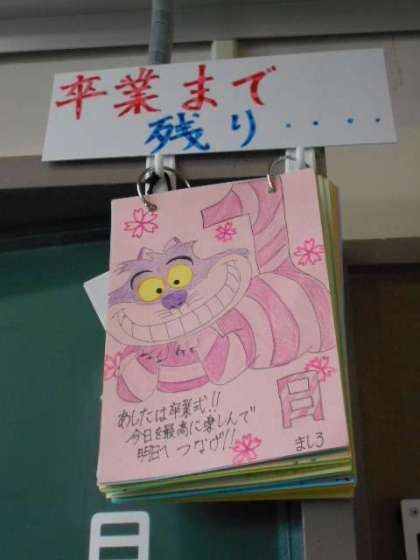 卒業まで
残り‥‥
1日
あしたは卒業式!!
今日を最高に楽しんで
明日へつなげ!!
ましろ
日